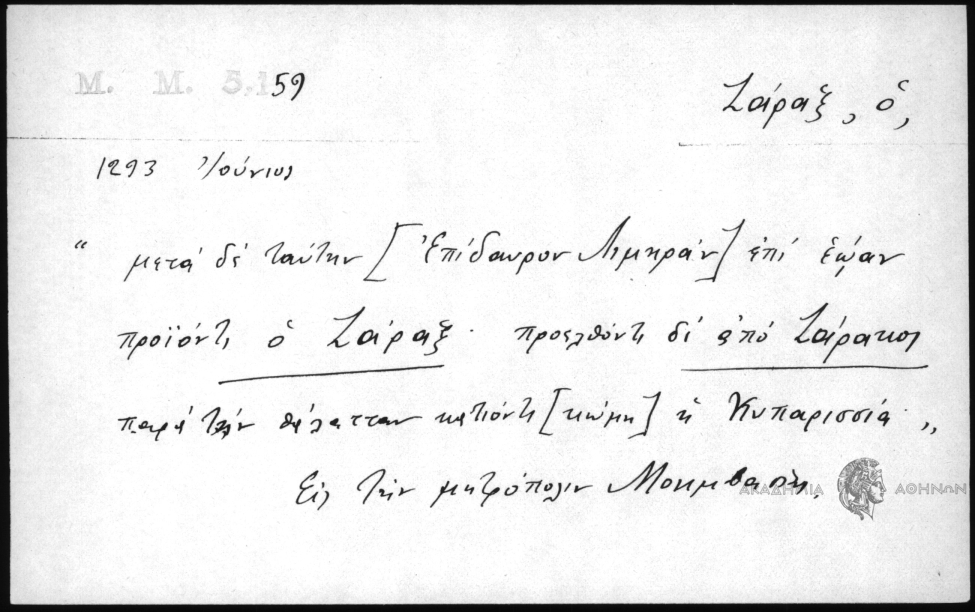 Μ. Μ. 5,159
Ζάραξ, ὁ,
1293 Ἰούνιος
“ μετά δέ ταύτην [Ἐπίδαυρον Λιμηράν] ἐπί ἑῴαν
προϊόντι ὁ Ζάραξ· προελθόντι δέ ἀπό Ζάρακος
παρά τήν θάλατταν κατιόντι [κώμη] ἡ Κυπαρισσία· „
Εἰς τήν μητρόπολιν
ΑΚΑΔΗΜΙΑ ΑΘΗΝΩΝ